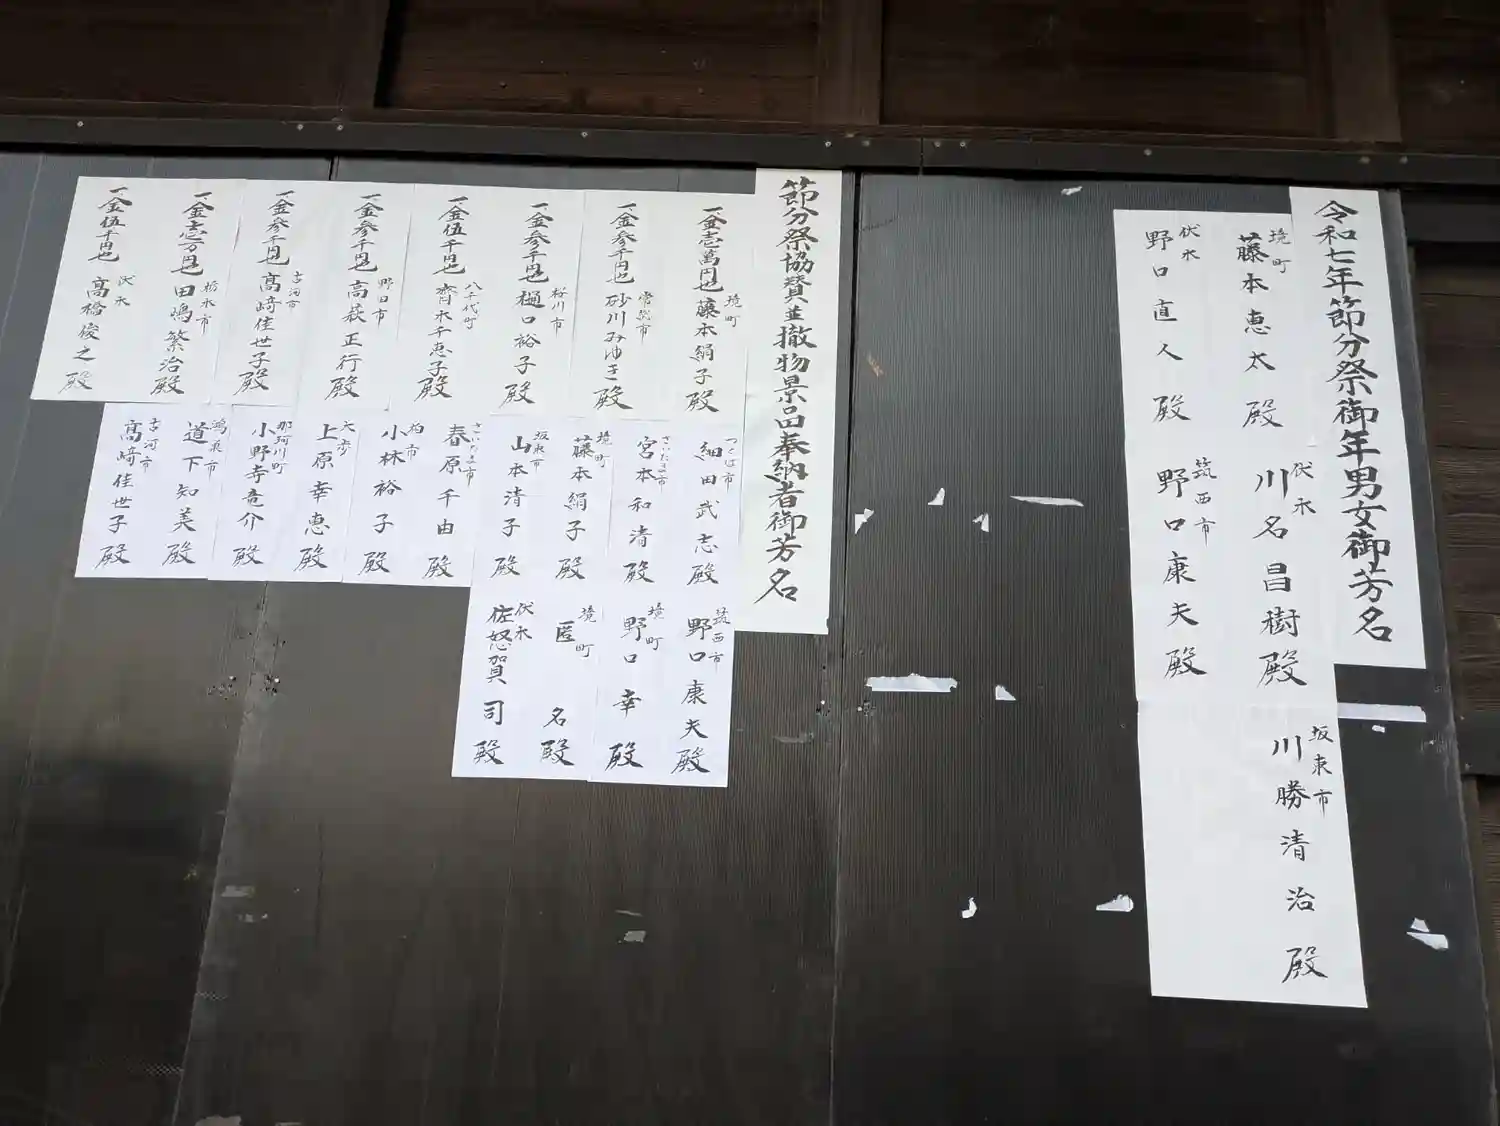 令和七年節分祭御年男女御芳名
境町
藤本恵太殿
伏木
川名昌樹殿
坂東市
川勝清治殿
伏木
野口直人殿
筑西市
野口康夫殿
節分祭協賛並撤物景品奉納者御芳名
一金壱萬円也 境町 藤本絹子殿
一金参千円也 常総市 砂川みゆき殿
一金参千円也 桜川市 樋口裕子殿
一金伍千円也 八千代町 齊木千恵子殿
一金参千円也 野田市 高萩正行殿
一金参千円也 古河市 髙﨑佳世子殿
一金壱万円也 栃木市 田嶋繁治殿
一金伍千円也 伏木 高橋俊之殿
つくば市 細田武志殿
さいたま市 宮本和清殿
境町 藤本絹子殿
坂東市 山本清子殿
さいたま市 春原千由殿
柏市 小林裕子殿
大歩 上原幸恵殿
那珂川町 小野寺竜介殿
鴻巣市 道下知美殿
古河市 髙﨑佳世子殿
筑西市 野口康夫殿
境町 野口幸殿
境町 匿名殿
伏木 佐怒賀司殿